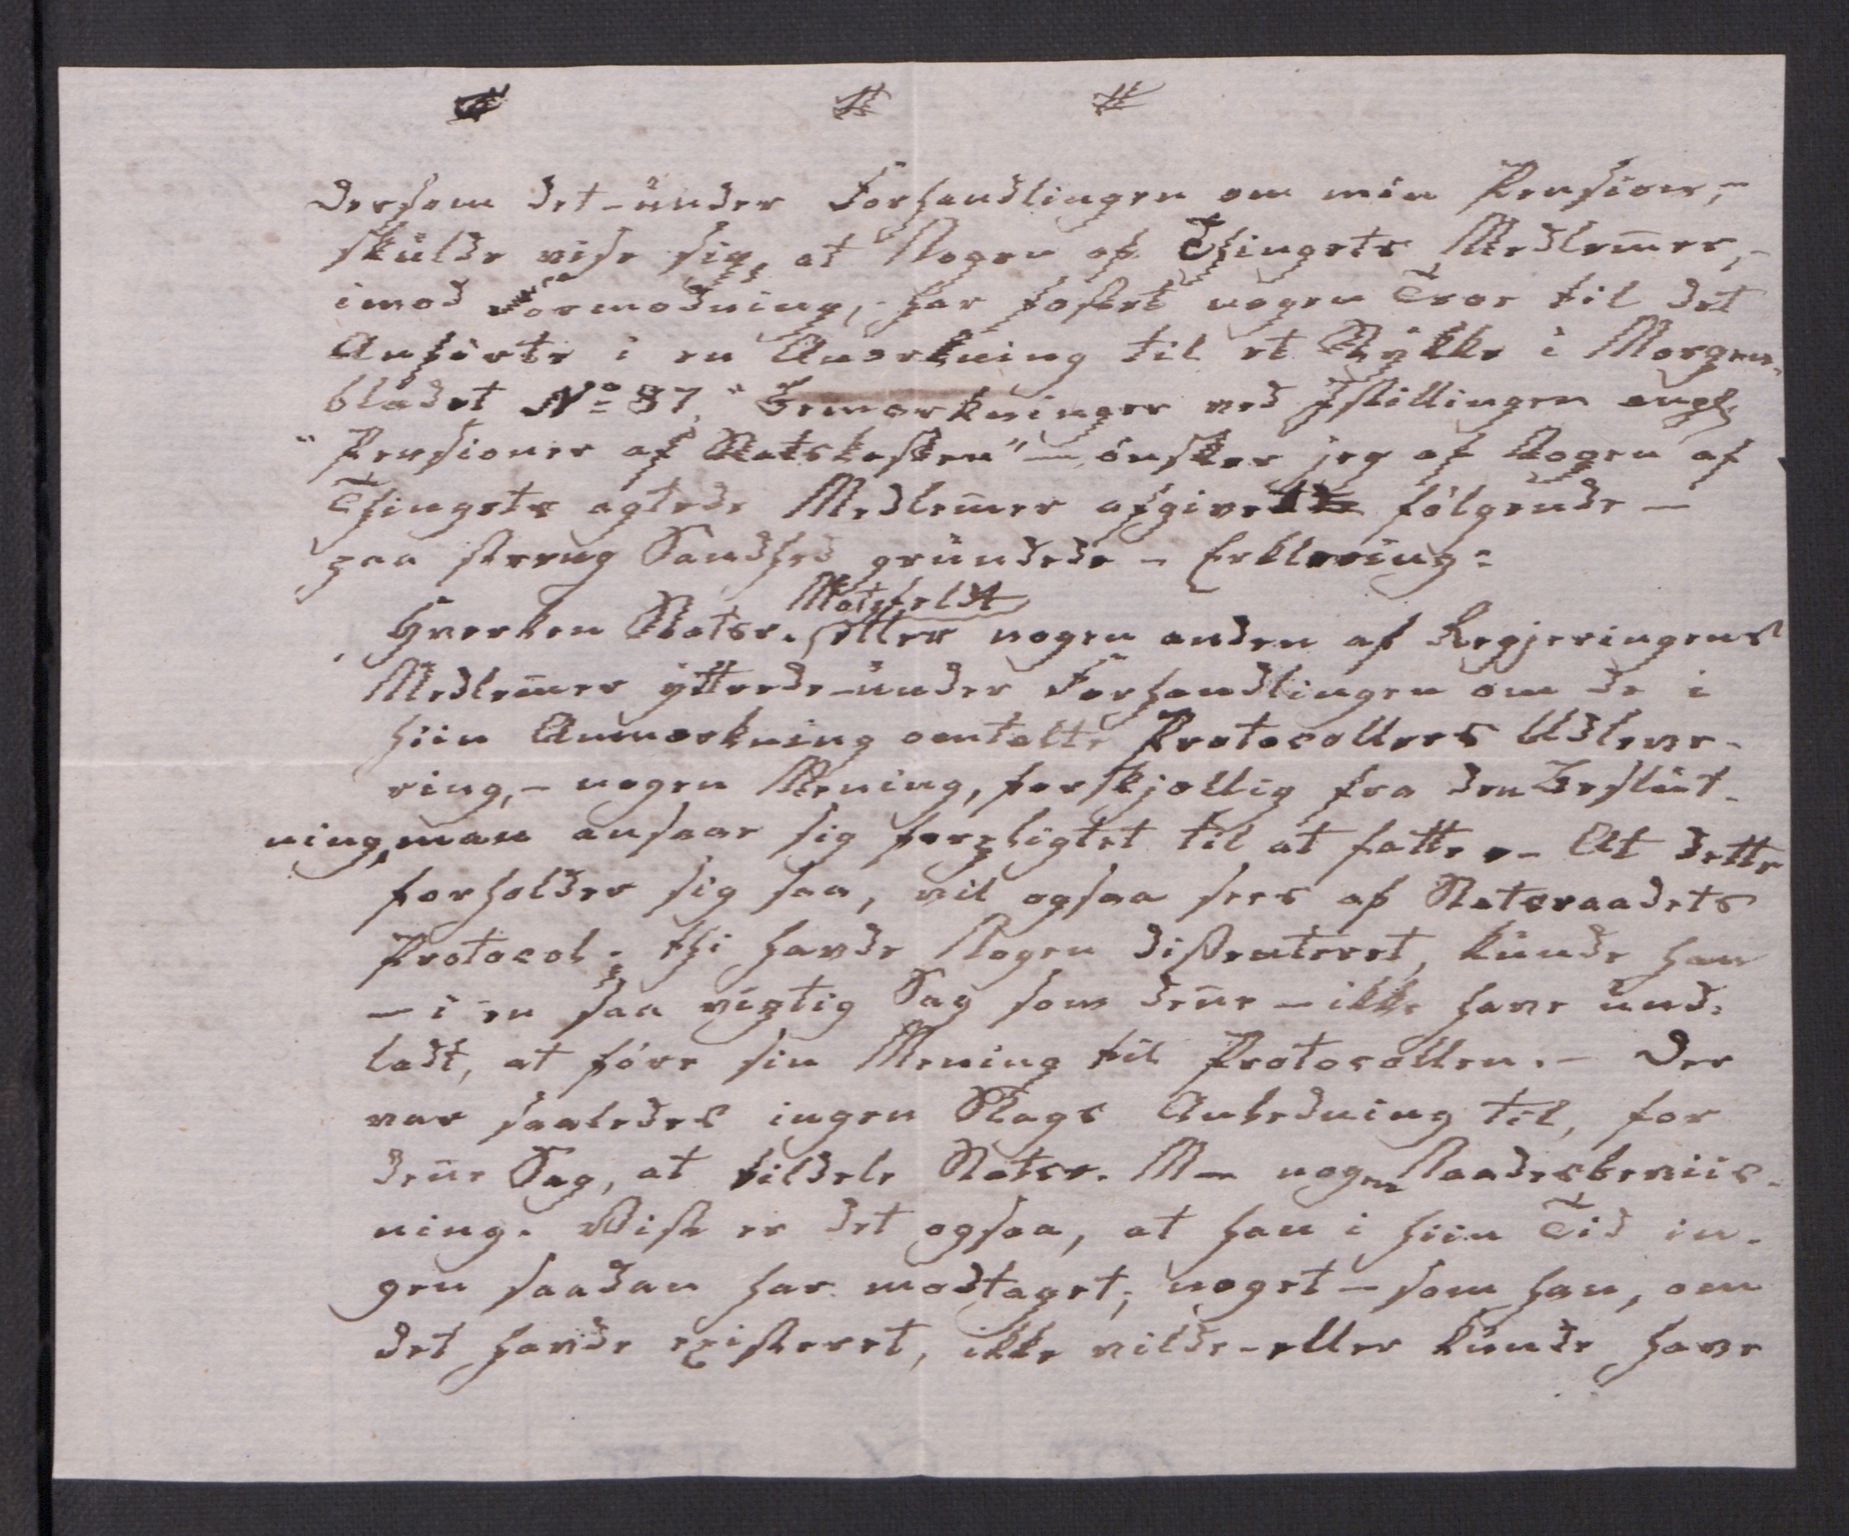 Dersom det – under Forhandlingen om min Pension, –
skulde vise sig, at Nogen af Thingets Medlem̄er, –
imod Formodning, – har fæstet nogen Troe til det
Anførte i en Anmærkning til et Stykke i Morgen-
bladet No 37, "Bemærkninger ved Indstillingen angl.
"Pensioner af Statskassen" – ønsker jeg af Nogen af
Thingets agtede Medlem̄er afgivet følgende –
paa streng Sandhed grundede – Erklæring:
Hverken Statsr. Motzfeldt eller nogen anden af Regjeringens
Medlem̄er yttrede – under Forhandlingen om de i
hiin Anmærkning omtalte Protocollers Udleve-
ring, – nogen Mening, forskjællig fra den Beslut-
ning, man ansaae sig forpligtet til at fatte. – At dette
forholder sig saa, vil ogsaa sees af Statsraadets
Protocol; thi havde Nogen dissenteret, kunde han
– i en saa vigtig Sag som den̄e – ikke have und-
ladt, at føre sin Mening til Protocollen. – Der
var saaledes ingen Slags Anledning til, for
den̄e Sag, at tildele Statsr. M – nogen Naadesbeviis-
ning. Vist er det ogsaa, at han i hiin Tid in-
gen saadan har modtaget; noget – som han, om
det havde existeret, ikke vilde – eller kunde have